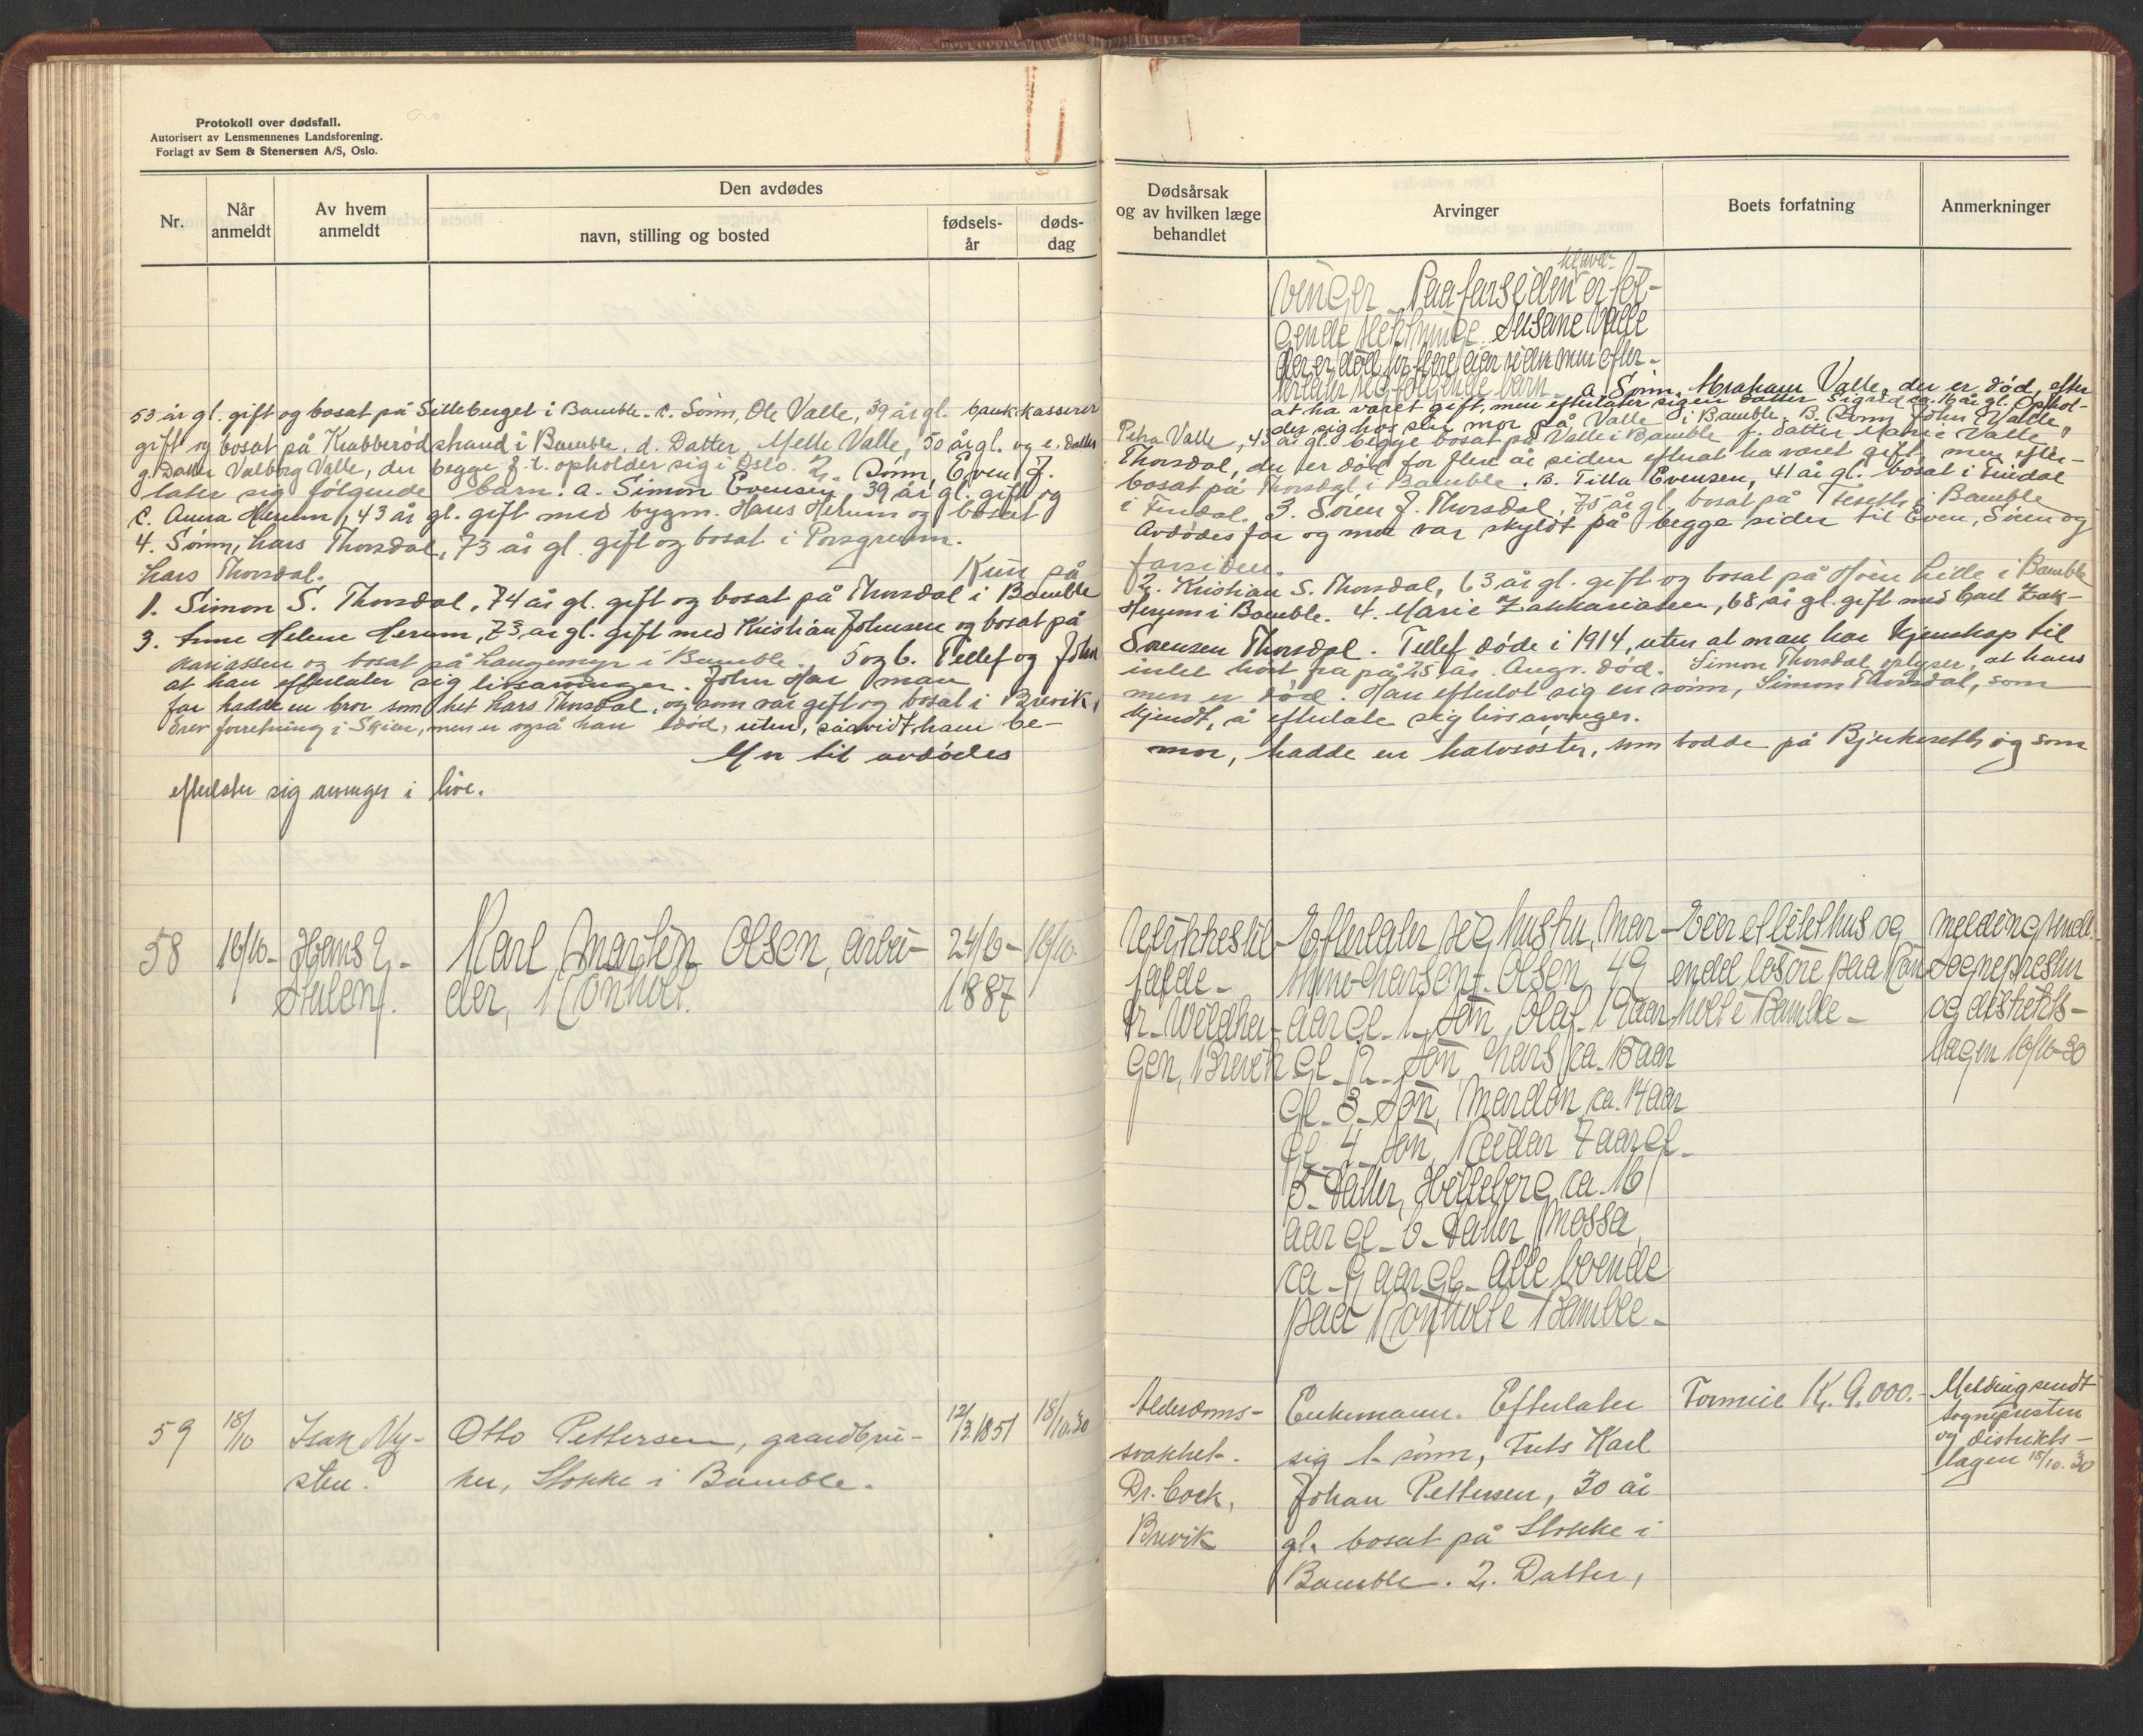 Protokoll over dødsfall.
Autorisert av Lensmennenes Landsforening.
Forlagt av Sem & Stenersen A/S, Oslo.
Nr.
Når anmeldt
Av hvem anmeldt
Den avdødes
navn, stilling og bosted
fødsels-år
døds-dag
Dødsårsak og av hvilken læge behandlet
Arvinger
Boets forfatning
Anmerkninger
venger. Paa farsiden er føl-
gende slektninge. Susane Valle
der er død for flere aar siden men efter-
later sig følgende barn. a Sønn, Abraham Valle, der er død, efter
at ha været gift, men efterlater sig en datter Sigrid ca. 16 år gl. Ophol-
der sig hos sin mor på Valle i Bamble. B. Sønn John Valle,
53 år gl. gift og bosat på Silleberget i Bamble. c. Sønn, Ole Valle, 39 år gl. bankkasserer
gift og bosat på Krabberødstrand i Bamble, d. Datter Melle Valle, 50 år gl. og e. datter
Petra Valle, 45 år gl. begge bosat på Valle i Bamble f. datter Marie Valle
g. Datter Valborg Valle, der begge f. t. opholder sig i Oslo. 2. Sønn, Even J.
Thorsdal, der er død for flere år siden efterat ha været gift, men efter-
later sig følgende barn: a. Simon Evensen, 39 år gl. gift og
bosat på Thorsdal i Bamble. B. Tilla Evensen, 41 år gl. bosat i Findal
c. Anna Herum, 43 år gl. gift med bygm. Hans Herum og bosat
i Findal. 3. Søren J. Thorsdal, 75 år gl. bosat på Teseth i Bamble
4. Sønn, Lars Thorsdal, 73 år gl. gift og bosat i Porsgrunn.
Avdødes far og mor var skyldt på begge sider til Even, Søren og
Lars Thorsdal.
Kun på
farsiden.
1. Simon S. Thorsdal, 74 år gl. gift og bosat på Thorsdal i Bamble
2. Kristian S. Thorsdal, 63 år gl. gift og bosat på Hoen Lille i Bamble
3. Anne Helene Herum, 73 år gl. gift med Kristian Johnsen og bosat på
Herum i Bamble. 4. Marie Zakkariasen, 68 år gl. gift med Carl Zak-
kariassen og bosat på Langemyr i Bamble. 5 og 6. Tellef og John
Sørensen Thorsdal. Tellef døde i 1914, uten at man har kjenskap til
at han efterlater sig livsarvinger. John har man
intet hørt fra på 25 år. Angv. død. Simon Thorsdal oplyser, at hans
far hadde en bror som het Lars Thorsdal, og som var gift og bosat i Brevik,
men er død. Han efterlot sig en sønn, Simon Thorsdal, som
drev forretning i Skien, men er også han død, uten, såvidt ham be-
kjendt, å efterlate sig livsarvinger.
Mor til avdødes
mor, hadde en halvsøster, som bodde på Bjerkeseth og som
efterlater sig arvinger i live.
58
16/10-
Hans E.
Stulen.
Karl Martin Olsen, arbei-
der, Rønholt.
24/6-
1887
16/10.
Ulykkestil-
fælde.
Dr. Wildha-
gen, Brevik
Efterlater sig hustru, Mar-
Anne Larsen f. Olsen, 49
aar gl. 1. Søn, Olaf, 19 aar
gl. 2. Søn, Lars ca. 15 aar
gl. 3. Søn, Mardon ca. 14 aar
gl. 4. Søn, Reidar 7 aar gl.
5. Datter, Hilleborg ca. 16
aar gl. 6. Datter Mossa
ca. 9 aar gl. Alle boende
paa Rønholt i Bamble.
Eier et litet hus og
endel løsøre paa Røn-
holt i Bamble.
Melding sendt
Sognepresten
og distrikts-
lagen 16/10-30
59
18/10
Isak Ny-
sten.
Otto Pettersen, gaardbru-
ker, Stokke i Bamble.
12/3.1851
18/10.30
Alderdoms-
svakhet.
Dr. Cock,
Brevik
Enkemann. Efterlater
sig 1. sønn, Karl
Johan Pettersen, 30 år
gl. bosat på Stokke i
Bamble. 2. Datter,
Formue Kr. 9.000.-
Melding sendt
sognepresten
og distrikts-
lagen 18/10.30